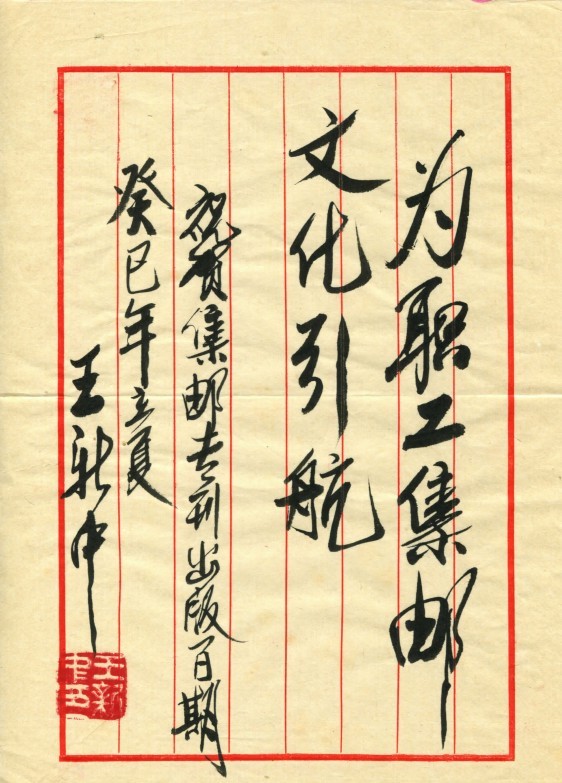 为职工集邮
文化引航
祝贺集邮专刊出版百期
癸巳年立夏
王新中
王新